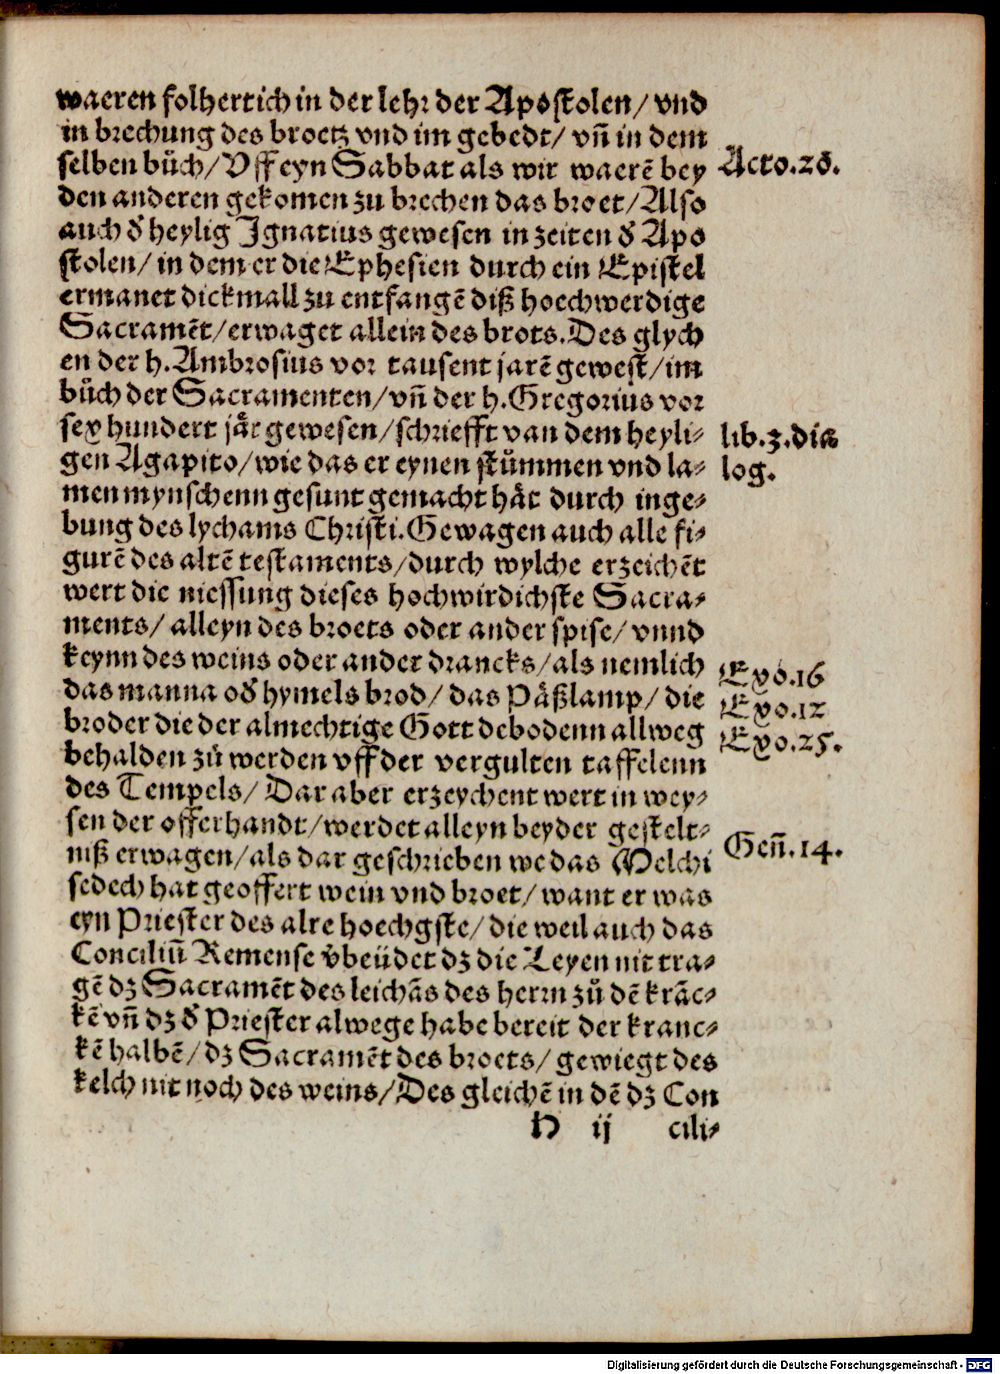 waeren folhertich in der lehr der Apostolen/ vnd
in brechung des broetz vnd im gebedt/ vñ in dem
selben bůch/ Vff eyn Sabbat als wir waerē bey
Acto.20.
den anderen gekomen zu brechen das broet/ Also
auch d̕ heylig Ignatius gewesen in zeiten d̕ Apo
stolen/ in dem er die Ephesien durch ein Epistel
ermanet dickmall zu entfangē diß hoechwerdige
Sacramēt/ erwaget allein des brots. Des glych
en der h. Ambrosius vor tausent jarē gewest/ im
bůch der Sacramenten/ vñ der h. Gregorius vor
sex hundert jår gewesen/ schriefft van dem heyli⸗
lib.3.dia
gen Agapito/ wie das er eynen stůmmen vnd la⸗
log.
men mynschenn gesunt gemacht håt durch inge⸗
bung des lychams Christi. Gewagen auch alle fi⸗
gurē des altē testaments/ durch wylche erzeichēt
wert die niessung dieses hochwirdichste Sacra⸗
ments/ alleyn des broets oder ander spise/ vnnd
keynn des weins oder ander drancks/ als nemlich
Exo.16
das manna od̕ hymels brod/ das Påßlamp/ die
Exo.12
broder die der almechtige Gott debodenn allweg
Exo.25.
behalden zů werden vff der vergulten taffelenn
des Tempels/ Dar aber erzeychent wert in wey⸗
sen der offerhandt/ werdet alleyn beyder gestelt⸗
Geñ.14.
niß erwagen/ als dar geschrieben we das Melchi
sedech hat geoffert wein vnd broet/ want er was
eyn Priester des alre hoechgste/ die weil auch das
Conciliū Remense v̓beüdet dz die Leyen nit tra⸗
gē dz Sacramēt des leichās des herrn zů dē krāc⸗
kē vñ dz d̕ Priester alwege habe bereit der kranc⸗
kē halbē/ dz Sacramēt des broets/ gewiegt des
kelch nit noch des weins/ Des gleichē in dē dz Con
H ij cili⸗
Digitalisierung gefördert durch die Deutsche Forschungsgemeinschaft - DFG